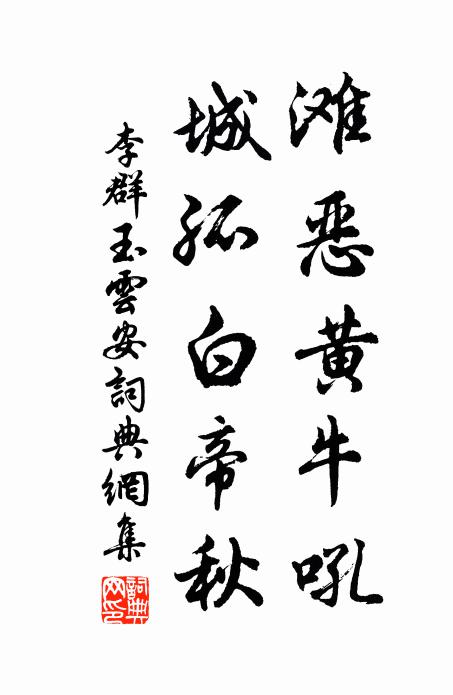 滩恶黄牛吼
城孤白帝秋
李群玉雲安詞典網集
詞典網印